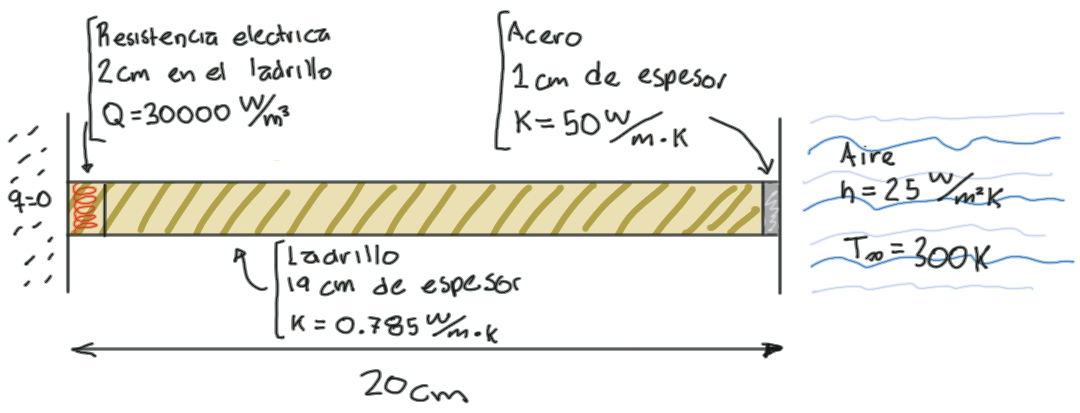 Resistencia electrica
2cm en el ladrillo
Q=30000 W/m³
Acero
1 cm de espesor
K= 50 W/m·K
q=0
Aire
h = 25 W/m²K
T∞ = 300K
Ladrillo
19 cm de espesor
K = 0.785 W/m·K
20cm